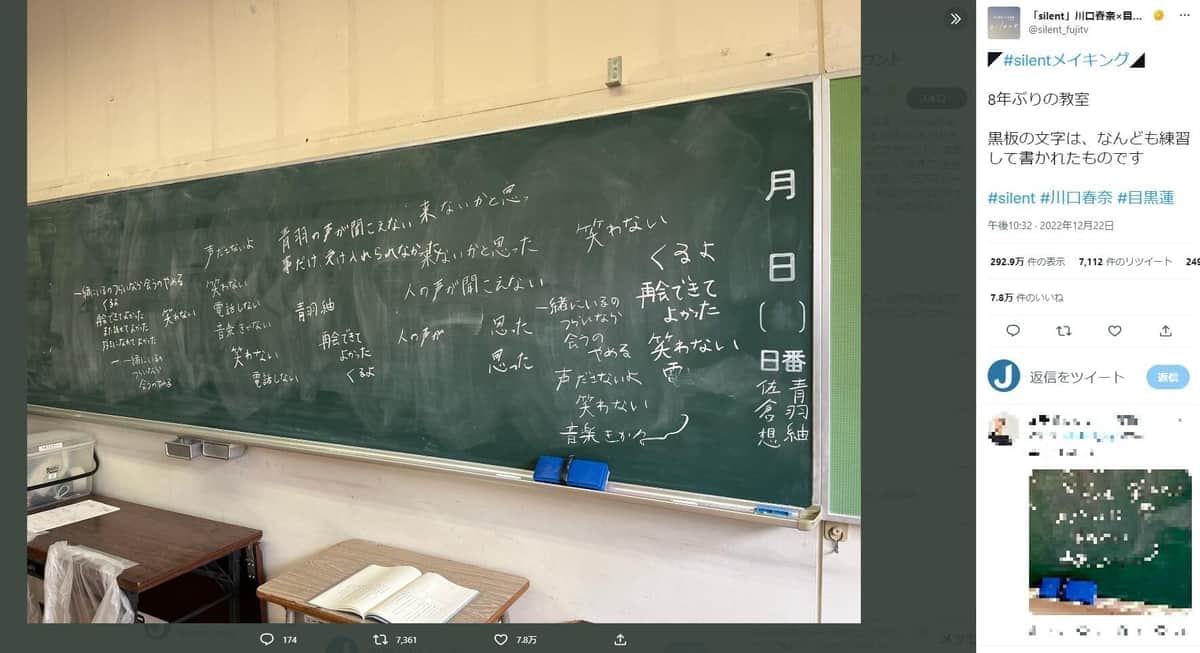 月
日
( )
日番
青羽紬
佐倉想
笑わない
くるよ
再会できて
よかった
笑わない
電
来ないかと思っ
青羽の声が聞こえない
事だけ、受け入れられなかった
来ないかと思った
人の声が聞こえない
一緒にいるの
つらいなら
会うの
やめる
声ださないよ
笑わない
音楽をきか
思った
思った
人の声が
声ださないよ
笑わない
電話しない
音楽きかない
笑わない
電話しない
青羽紬
再会できて
よかった
くるよ
一緒にいるのつらいなら会うのやめる
くるよ
再会できてよかった
また話せてよかった
笑わない
一緒にいるの
つらいなら
会うのやめる
174
7,361
7.8万
「silent」川口春奈×目...
@silent_fujitv
◤#silentメイキング◢
8年ぶりの教室
黒板の文字は、なんども練習
して書かれたものです
#silent #川口春奈 #目黒蓮
午後10:32 · 2022年12月22日
292.9万 件の表示 7,112 件のリツイート 249
7.8万 件のいいね
返信をツイート
返信